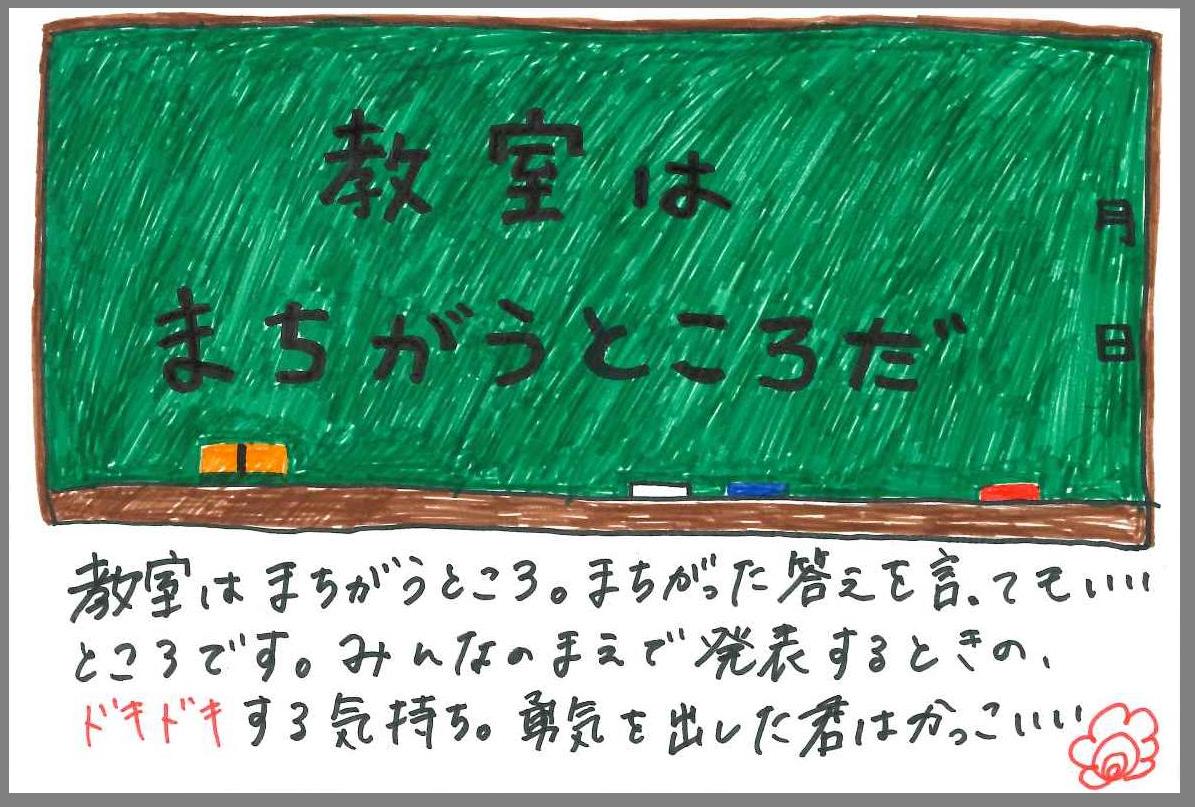 教室は
まちがうところだ
月
日
教室はまちがうところ。まちがった答えを言ってもいい
ところです。みんなのまえで発表するときの、
ドキドキする気持ち。勇気を出した君はかっこいい